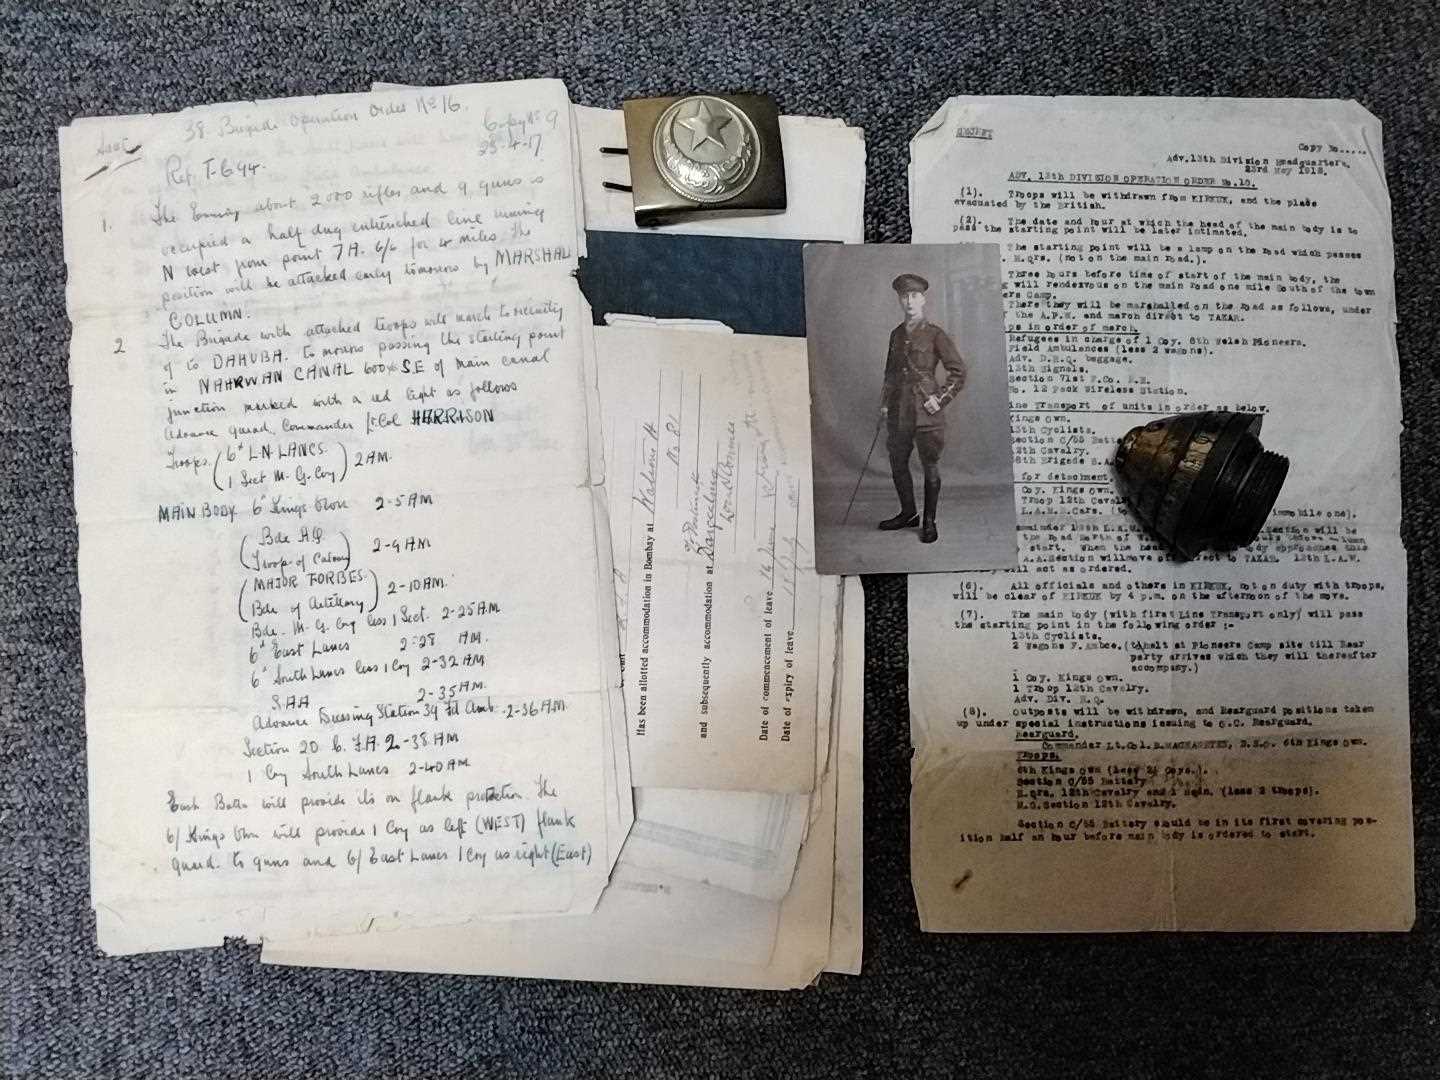 38. Brigade Operation Order No 16.
Copy No 9
23-4-17
Ref. T-C 44.
1. The Enemy about 2000 rifles and 9 guns is
occupied a half dug entrenched line running
N West from point 7A. 6/6 for 4 miles. The
position will be attacked early tomorrow by MARSHALL
COLUMN.
2 The Brigade with attached troops will march to vicinity
of to DAHUBA. to morrow passing the starting point
in NAHRWAN CANAL 600x S.E of main canal
junction marked with a red light as follows
Advance guard, Commander Lt. Col HARRISON
Troops. (6th L.N. LANCS.
1 Sect M. G. Coy) 2 AM.
MAIN BODY 6th Kings Own 2-5 AM
(Bde HQ
Troop of Calvary) 2-9 AM
(MAJOR FORBES.
Bde of Artillery) 2-10 AM.
Bde. M. G. Coy less 1 Sect. 2-25 AM
6th East Lancs 2-28 AM.
6th South Lancs less 1 Coy 2-32 AM
SAA 2-35 AM.
Advance Dressing Station 39 Fd Amb. 2-36 AM
Section 20 C. F.A. 2-38 AM
1 Coy South Lancs 2-40 AM
Each Battn will provide its on flank protection. The
6/ Kings Own will provide 1 Coy as left (WEST) flank
guard. to guns and 6/ East Lancs 1 Coy as right (East)
Has been allotted accommodation in Bombay at
No 81
and subsequently accommodation at
Date of commencement of leave 16 June
Date of expiry of leave 15 July
SECRET
Copy No.....
Adv. 13th Division Headquarters,
23rd May 1918.
ADV. 13th DIVISION OPERATION ORDER No.10.
(1). Troops will be withdrawn from KIRKUK, and the place
evacuated by the British.
(2). The date and hour at which the head of the main body is to
pass the starting point will be later intimated.
The starting point will be a lamp on the road which passes
. H.Qrs. (not on the main road.).
Three hours before time of start of the main body, the
g will rendezvous on the main road one mile South of the town
ers Camp.
There they will be marshalled on the road as follows, under
f the A.P.M. and march direct to TAKAR.
ps in order of march.
Refugees in charge of 1 Coy. 8th Welsh Pioneers.
Field Ambulances (less 2 wagons).
Adv. D.H.Q. baggage.
13th Signals.
Section 71st F.Co. R.E.
No. 12 Pack Wireless Station.
ine Transport of units in order as below.
Kings Own.
13th Cyclists.
Section C/55 Batte
12th Cavalry.
38th Brigade S.A.
for detachment.
Coy. Kings Own.
Troop 12th Caval
L.A.M.B. Cars. (to
immobile one).
emainder 13th L.A.M.
Section will be
the road North of
start. When the head
body approaches this
A.A. Section will move off direct to TAKAR. 13th L.A.M.
will act as ordered.
(6). All officials and others in KIRKUK, not on duty with troops,
will be clear of KIRKUK by 4 p.m. on the afternoon of the move.
(7). The main body (with first Line Transport only) will pass
the starting point in the following order :-
13th Cyclists.
2 Wagons F. Ambce. (to halt at Pioneers Camp site till Rear
party arrives which they will thereafter
accompany.)
1 Coy. Kings Own.
1 Troop 12th Cavalry.
Adv. Div. H.Q.
(8). Outposts will be withdrawn, and Rearguard positions taken
up under special instructions issuing to O.C. Rearguard.
Rearguard.
Commander Lt. Col. D. MACNABETEN, D.S.O. 6th Kings Own.
Troops.
6th Kings Own (less 2½ Coys.).
Section C/55 Battery
H.Qrs, 12th Cavalry and 1 Sqdn. (less 2 troops).
M.G. Section 12th Cavalry.
Section C/55 Battery should be in its first covering pos-
ition half an hour before main body is ordered to start.